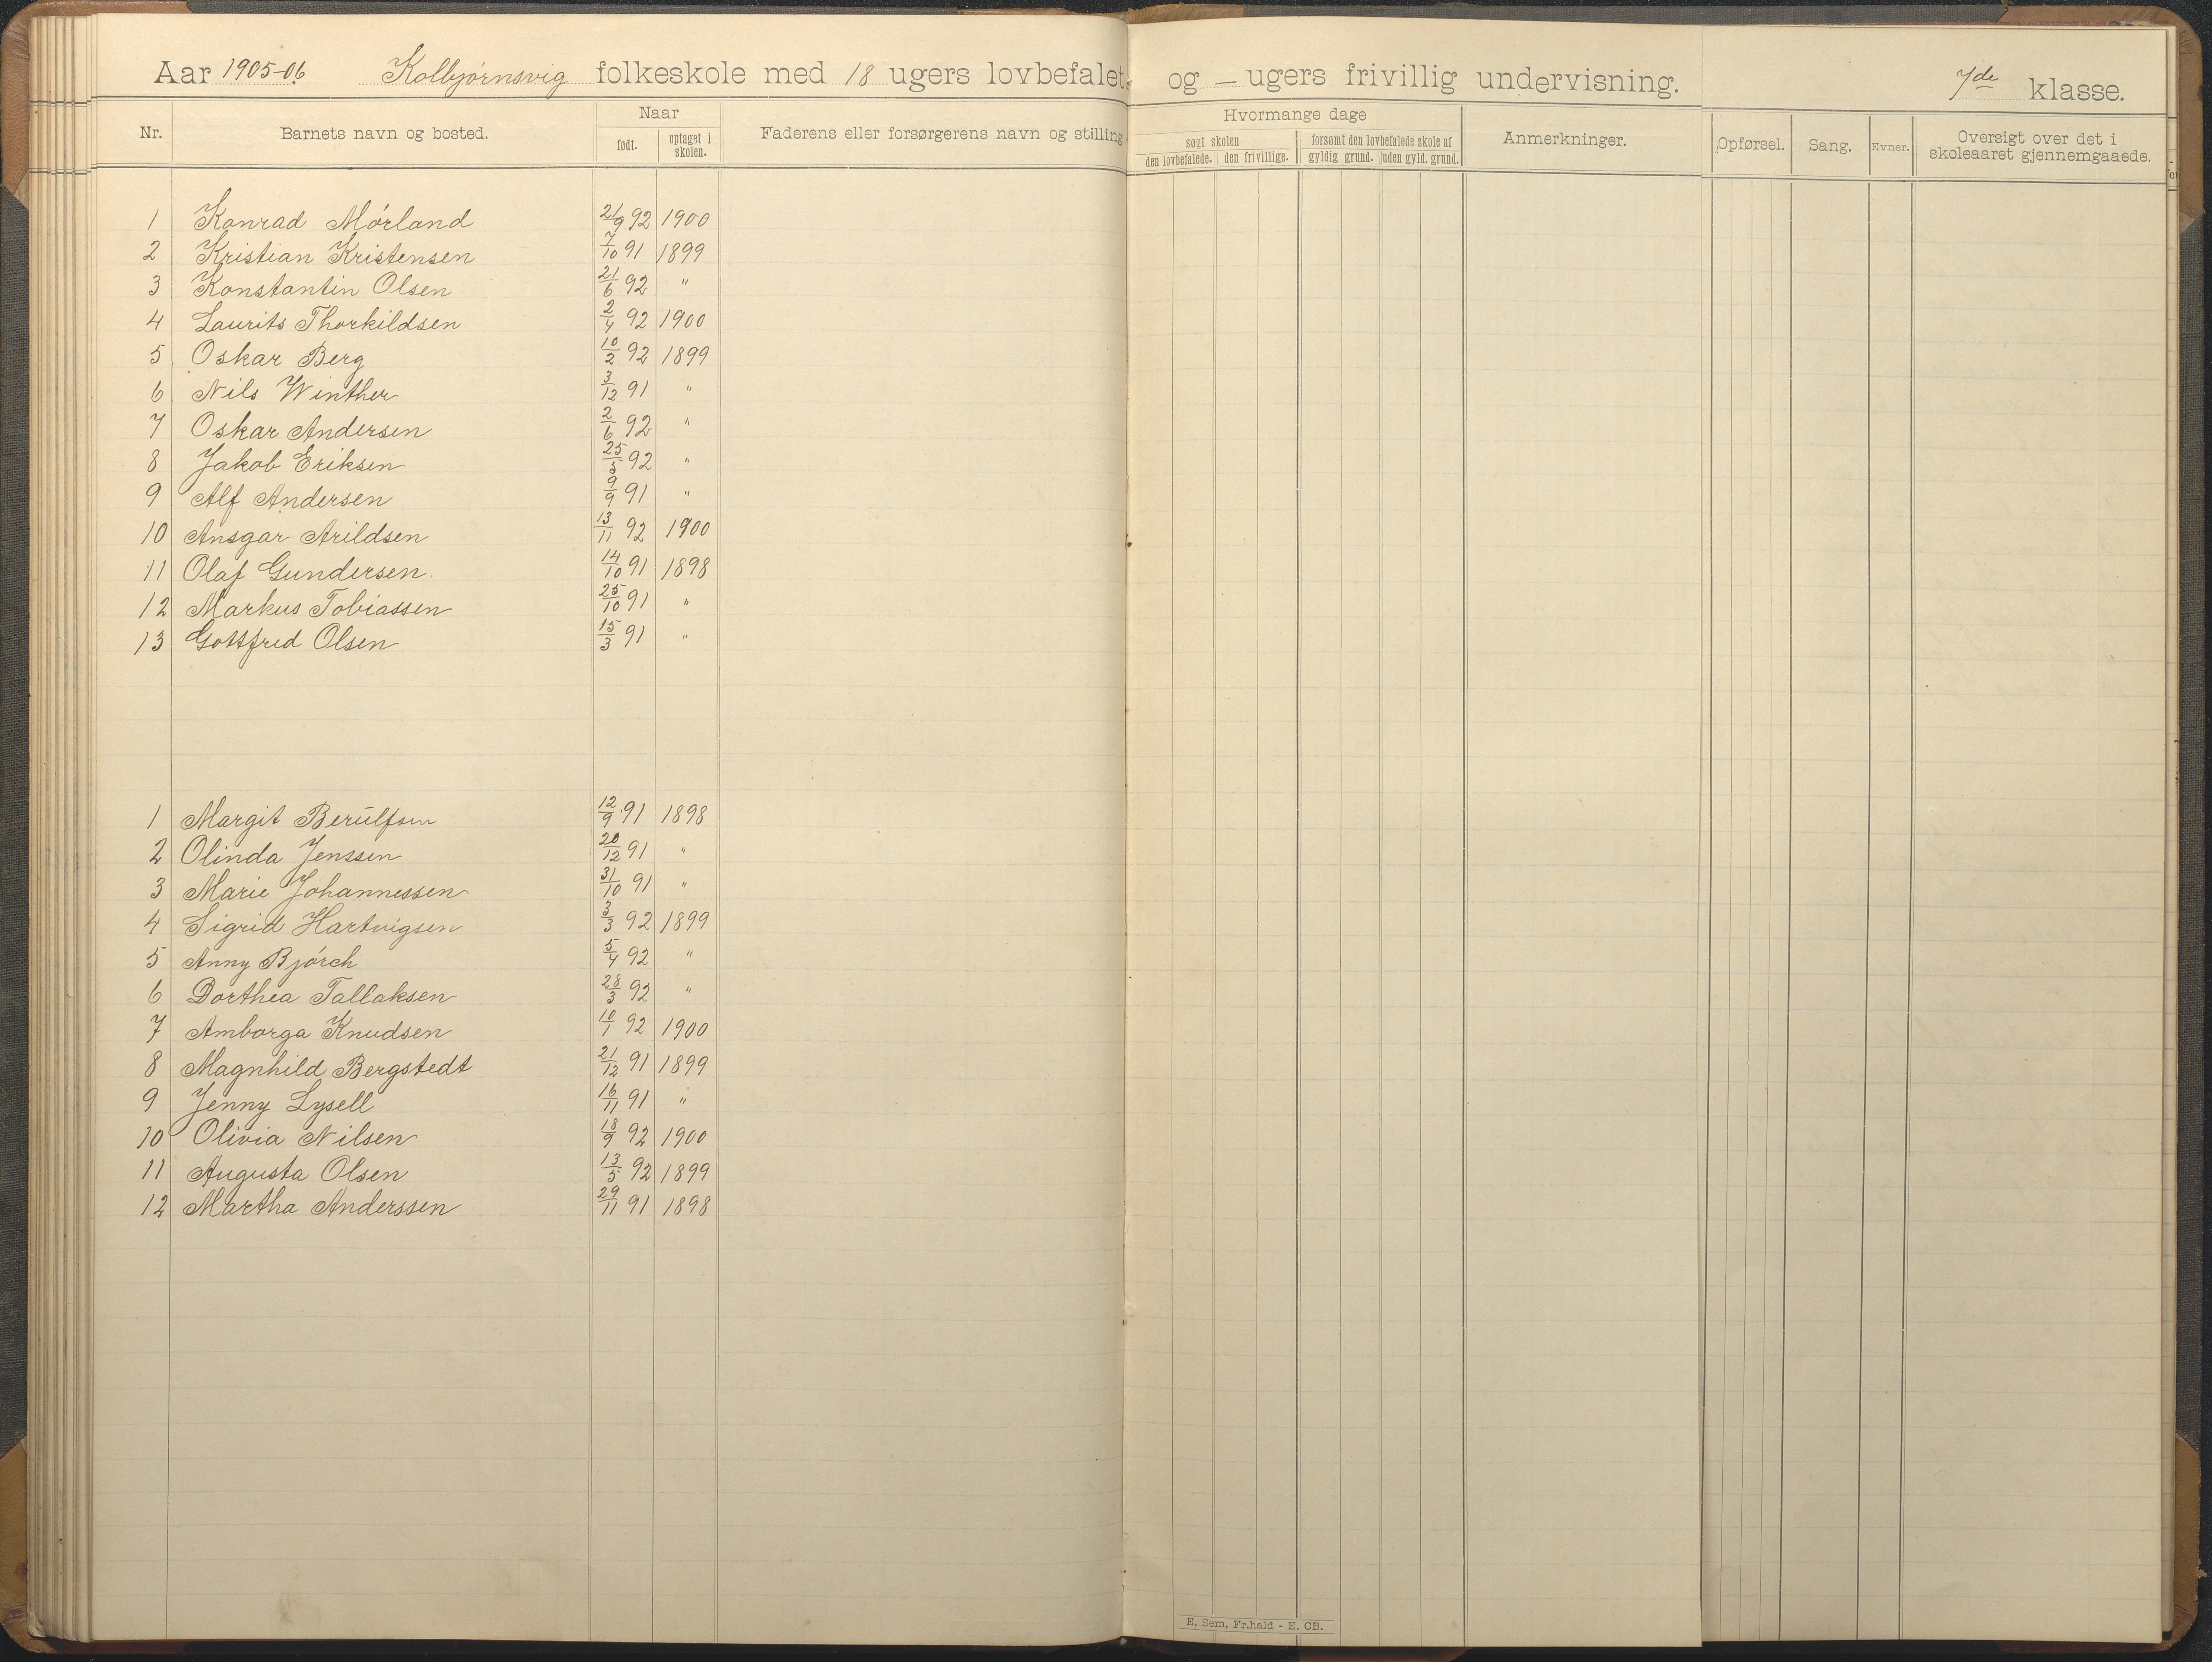 Aar 1905-06. Kolbjørnsvig folkeskole med 18 ugers lovbefalet og – ugers frivillig undervisning. 7de klasse.
Nr. Barnets navn og bosted. Naar født. optaget i skolen. Faderens eller forsørgerens navn og stilling Hvormange dage søgt skolen den lovbefalede. den frivillige. forsømt den lovbefalede skole af gyldig grund. uden gyld. grund. Anmerkninger. Opførsel. Sang. Evner. Oversigt over det i skoleaaret gjennemgaaede.
1 Konrad Mørland 21/9 92 1900
2 Kristian Kristensen 7/10 91 1899
3 Konstantin Olsen 21/6 92 "
4 Laurits Thorkildsen 2/4 92 1900
5 Oskar Berg 10/2 92 1899
6 Nils Winther 3/12 91 "
7 Oskar Andersen 2/6 92 "
8 Jakob Eriksen 25/5 92 "
9 Alf Andersen 9/9 91 "
10 Ansgar Arildsen 13/11 92 1900
11 Olaf Gundersen. 14/10 91 1898
12 Markus Tobiassen 25/10 91 "
13 Gottfred Olsen 15/3 91 "
1 Margit Berulfsen 12/9 91 1898
2 Olinda Jenssen 20/12 91 "
3 Marie Johannessen 31/10 91 "
4 Sigrid Hartvigsen 3/3 92 1899
5 Anny Bjørch 5/4 92 "
6 Dorthea Tallaksen 28/3 92 "
7 Amborga Knudsen 10/1 92 1900
8 Magnhild Bergstedt 21/12 91 1899
9 Jenny Lysell 16/11 91 "
10 Olivia Nilsen 18/9 92 1900
11 Augusta Olsen 13/5 92 1899
12 Martha Anderssen 29/11 91 1898
E. Sem, Fr.hald - E. CB.